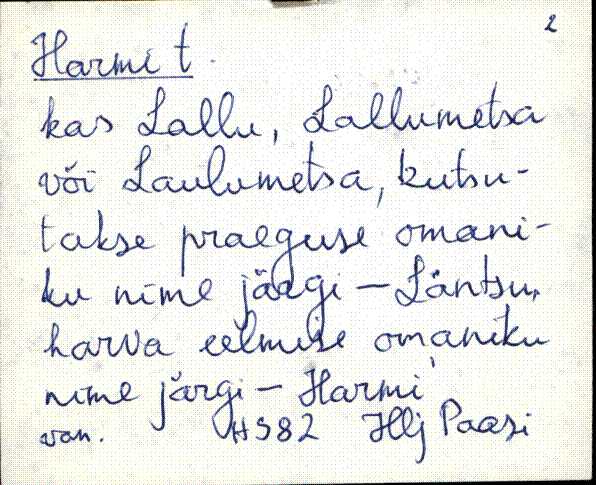 2
Harmi t.
kas Lallu, Lallumetsa
või Laulumetsa, kutsu-
takse praeguse omani-
ku nime järgi - Läntsu,
harva eelmise omaniku
nime järgi - Harmi
van. H982 Hlj Paasi